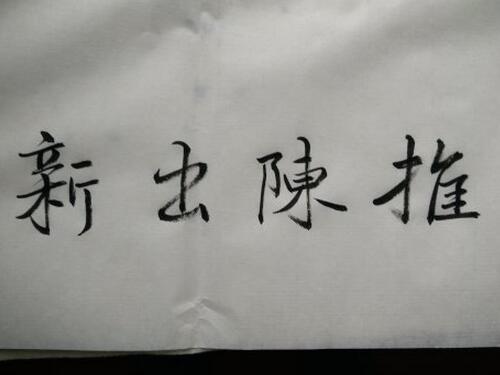 推陳出新